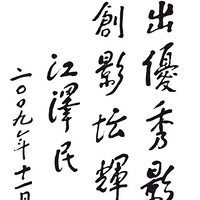 出優秀影
創影坛輝
江澤民
二〇〇九年十一月